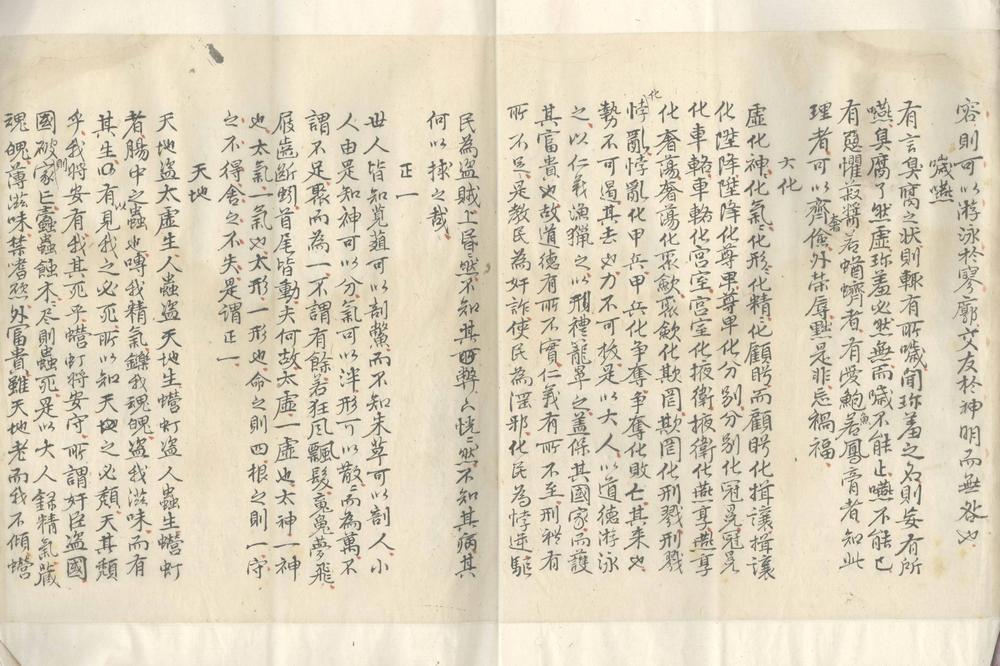 容則可以游泳於寥廓交友於神明而無咎也
噦嚥
有言臭腐之狀則輙有所噦聞珍羞之名則妄有所
嚥臭腐了然虛珍羞必然無而噦不能止嚥不能已
有惡懼菽醬若蝤蠐者有愛鮑魚若鳳膏者知此
理者可以齊奢儉外榮辱黜是非忘禍福
大化
虛化神化氣〻化形〻化精〻化顧眄而顧眄化揖讓揖讓
化陞降陞降化尊卑尊卑化分別分別化冠冕冠冕
化車輅車輅化宮室宮室化掖衛掖衛化燕享燕享
化奢蕩奢蕩化聚歛聚歛化欺罔欺罔化刑戮刑戮
化悖亂悖亂化甲兵甲兵化争奪争奪化敗亡其来也
勢不可遏其去也力不可拔是以大人以道德游泳
之以仁義漁獵之以刑禮籠罩之盖保其國家而護
其富貴也故道德有所不實仁義有所不至刑禮有
所不足是教民為奸詐使民為淫邪化民為悖逆驅
民為盗賊上昬〻然不知其弊下恍〻然不知其病其
何以捄之哉
正一
世人皆知莧蕰可以剖鱉而不知朱草可以剖人小
人由是知神可以分氣可以泮形可以散〻而為萬不
謂不足聚而為一不謂有餘若狂風飄髮寬魂夢飛
屐齒斷蚓首尾皆動夫何故太虛一虛也太神一神
也太氣一氣也太形一形也命之則四根之則一守
之不得舍之不失是謂正一
天地
天地盗太虛生人蟲盗天地生蟧虰盗人蟲生蟧虰
者腸中之蟲也嘬我精氣鑠我魂魄盗我滋味而有
其生以有見我之必死所以知天地之必頹天其頹
乎我將安有我其死乎蟧虰將安守所謂奸臣盗國
國破則家亡蠹蟲蝕木〻尽則蟲死是以大人錄精氣藏
魂魄薄滋味禁嗜慾外富貴雖天地老而我不傾蟧